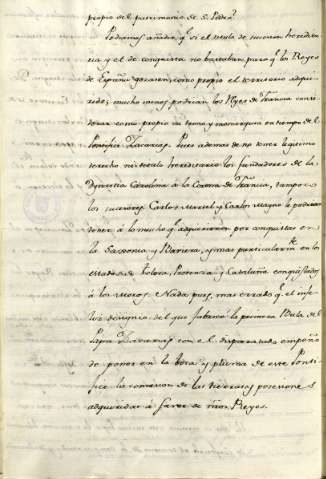 propio del patrimonio de S. Pedro.
Podemos añadir, q.e si el titulo de sucesion heredita
ria y el de conquista no bastaban, para q.e los Reyes
de España gozasen, como propio el territorio adqui
rido; mucho menos podrian los Reyes de Francia consi
derar como propio su trono y monarquia en tiempo de el
Pontifice Zacarias. Pues ademas de no tener legitimo
derecho ni titulo hereditario los fundadores de la
Dynastia Carolina á la Corona de Francia, tampoco
los sucesores Carlos Martel y Carlos Magno le podrian
tener á lo mucho q.e adquirieron por conquistas en
la Saxonia y Baviera, y mas particularm.te en los
estados de Provenza y Cataluña conquistados
á los Moros. Nada pues mas errado q.e el infe
liz designio del que fabricó la primera Bula del
Papa Zacarias con el disparatado empeño
de poner en la boca y pluma de este Ponti
fice la concesion de las tierras y posesiones
adquiridas á favor de n̄ros Reyes.